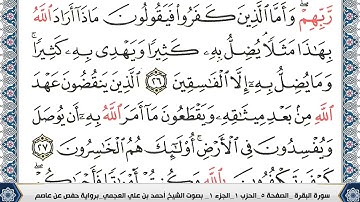 رَّبِّهِمْ ۖ وَأَمَّا ٱلَّذِينَ كَفَرُوا۟ فَيَقُولُونَ مَاذَآ أَرَادَ ٱللَّهُ
بِهَٰذَا مَثَلًا ۘ يُضِلُّ بِهِۦ كَثِيرًا وَيَهْدِى بِهِۦ كَثِيرًا ۚ
وَمَا يُضِلُّ بِهِۦٓ إِلَّا ٱلْفَٰسِقِينَ ٢٦ ٱلَّذِينَ يَنقُضُونَ عَهْدَ
ٱللَّهِ مِنۢ بَعْدِ مِيثَٰقِهِۦ وَيَقْطَعُونَ مَآ أَمَرَ ٱللَّهُ بِهِۦٓ أَن يُوصَلَ
وَيُفْسِدُونَ فِى ٱلْأَرْضِ ۚ أُو۟لَٰٓئِكَ هُمُ ٱلْخَٰسِرُونَ ٢٧
كَيْفَ تَكْفُرُونَ بِٱللَّهِ وَكُنتُمْ أَمْوَٰتًا فَأَحْيَٰكُمْ
سورة البقرة _ الصفحة ٥ _ الحزب ١ _ الجزء ١ _ بصوت الشيخ أحمد بن علي العجمي _ برواية حفص عن عاصم